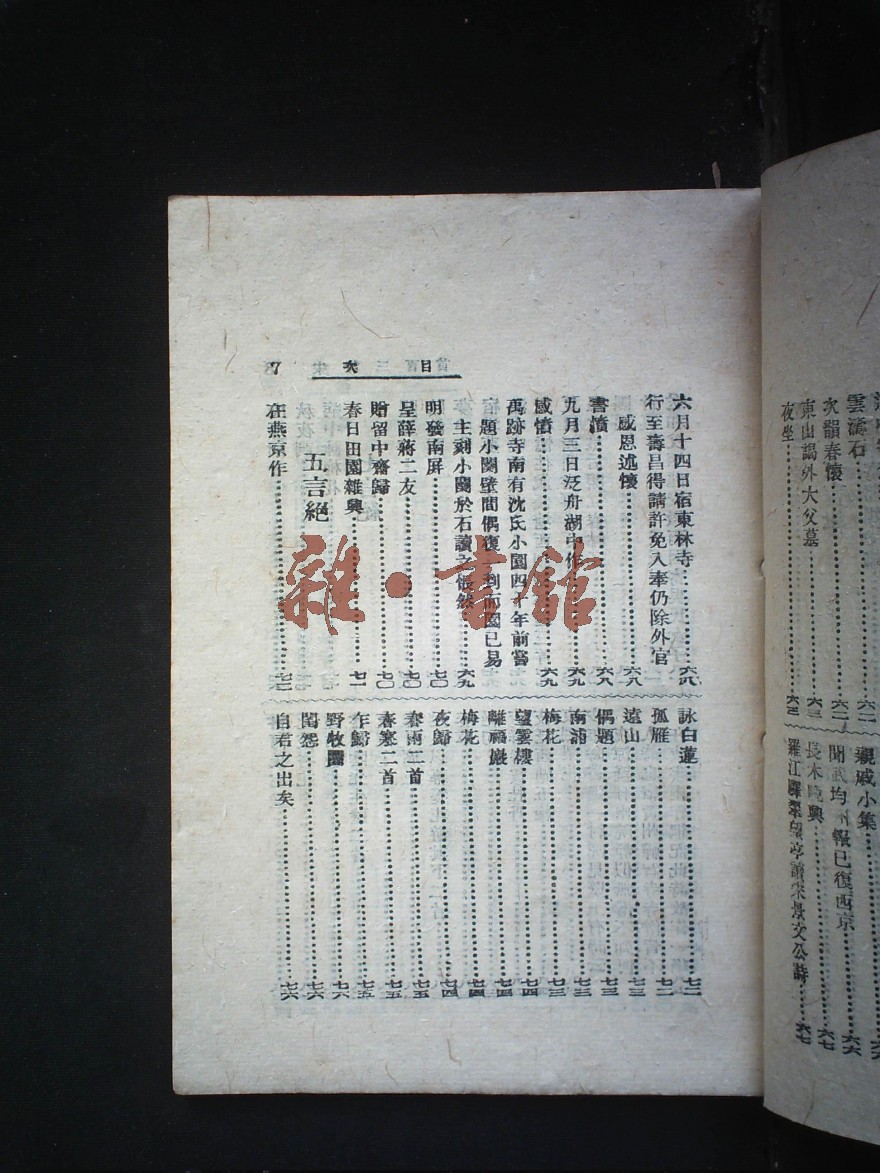 雲濤石……六二
次韻春懷……六二
東山謁外大父墓……六三
夜坐……六三
親戚小集……六六
聞武均州報已復西京……六六
長木晚興……六七
羅江驛翠望亭讀宋景文公詩……六七
目次 7
六月十四日宿東林寺……六八
行至壽昌得請許免入奉仍除外官
感恩述懷……六八
書憤……六八
九月三日泛舟湖中作……六九
感憤……六九
禹跡寺南有沈氏小園四十年前嘗
題小闋壁間偶復一到而園已易
主刻小闋於石讀之悵然……六九
明發南屏……七〇
呈薛蔣二友……七〇
贈留中齋歸……七〇
春日田園雜興……七一
五言絕
在燕京作……七二
詠白蓮……七二
孤雁……七二
遠山……七三
偶題……七三
南浦……七三
梅花……七三
望雲樓……七四
離福巖……七四
梅花……七四
夜歸……七四
春雨二首……七五
春寒二首……七五
乍歸……七五
野牧圖……七六
閨怨……七六
自君之出矣……七六
雜·書館